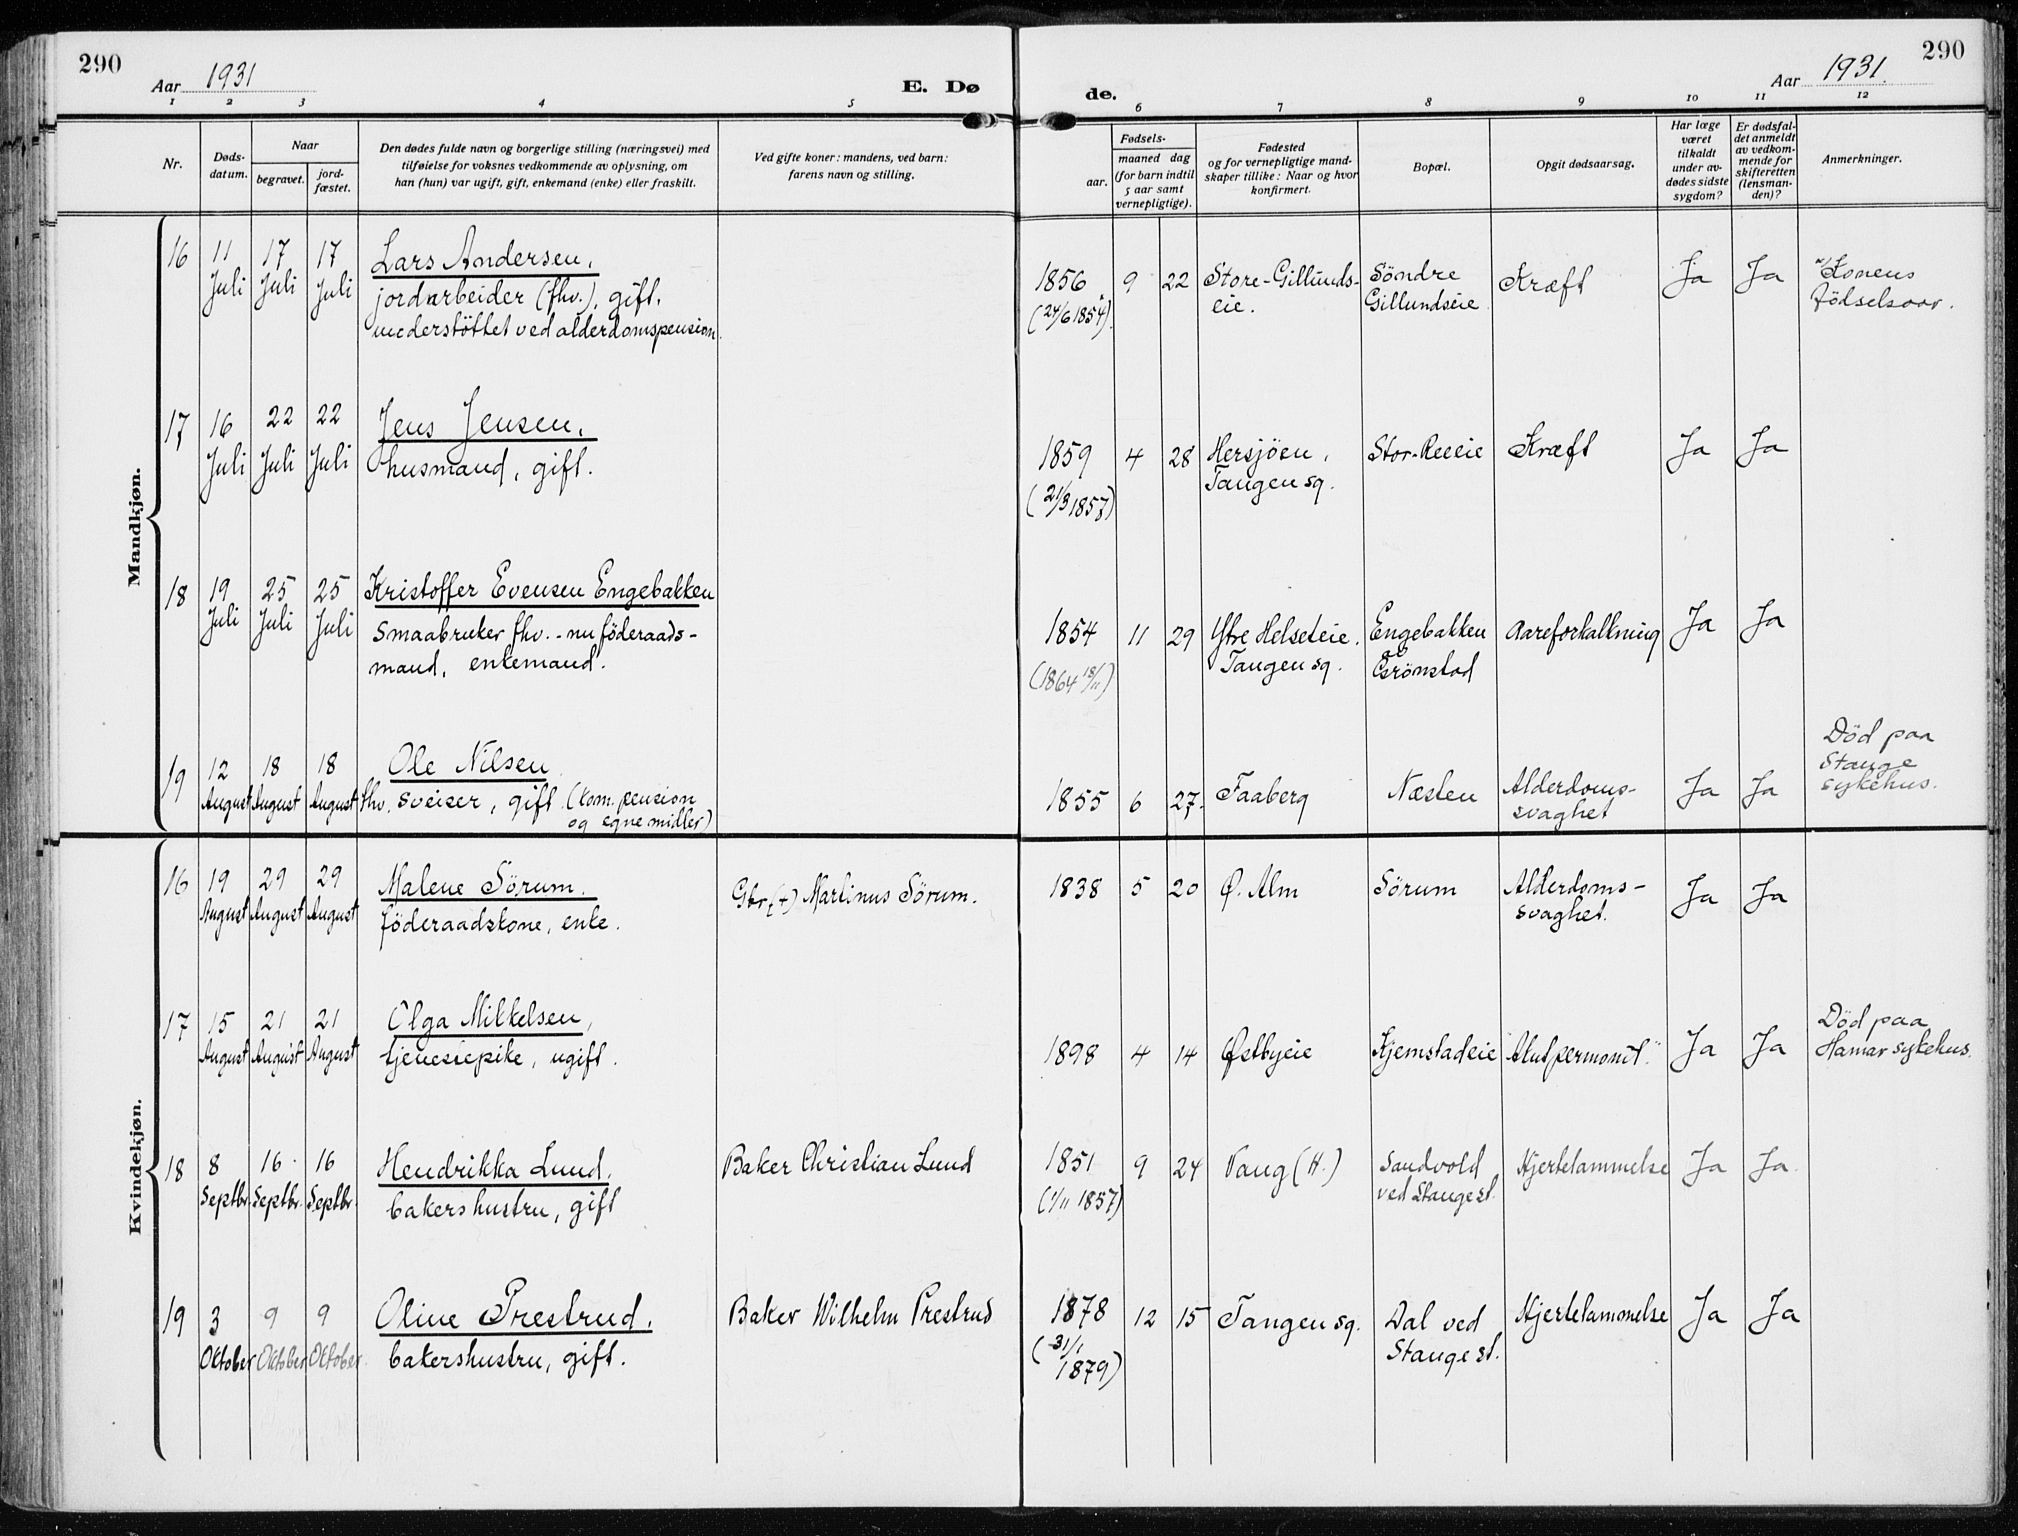 290
Aar 1931
E. Dø
de.
Aar 1931.
290
1 2 3 4 5 6 7 8 9 10 11 12
Nr.
Døds-
datum.
Naar
begravet.
jord-
fæstet.
Den dødes fulde navn og borgerlige stilling (næringsvei) med
tilføielse for voksnes vedkommende av oplysning, om
han (hun) var ugift, gift, enkemand (enke) eller fraskilt.
Ved gifte koner: mandens, ved barn:
farens navn og stilling.
Fødsels-
aar.
maaned dag
(for barn indtil
5 aar samt
vernepligtige).
Fødested
og for vernepligtige mand-
skaper tillike: Naar og hvor
konfirmert.
Bopæl.
Opgit dødsaarsag.
Har læge
været
tilkaldt
under av-
dødes sidste
sygdom?
Er dødsfal-
det anmeldt
av vedkom-
mende for
skifteretten
(lensman-
den)?
Anmerkninger.
Mandkjøn.
16
11
Juli
17
Juli
17
Juli
Lars Andersen,
jordarbeider (fhv.), gift,
understöttet ved alderdomspension
1856
(24/6 1854).
9
22
Store-Gillunds-
eie.
Söndre
Gillundseie
Kræft
Ja
Ja
Konens
födselsaar.
17
16
Juli
22
Juli
22
Juli
Jens Jensen,
husmand, gift.
1859
(21/3 1857)
4
28
Hersjöen,
Tangen sq.
Stor-Reeeie
Kræft
Ja
Ja
18
19
Juli
25
Juli
25
Juli
Kristoffer Evensen Engebakken
Smaabruker fhv. - nu föderaads-
mand, enkemand.
1854
(1864 18/11)
11
29
Ytre Helseteie.
Tangen sq.
Engebakken
Grönstad
Aareforkalkning
Ja
Ja
19
12
August
18
August
18
August
Ole Nilsen
fhv. sveiser, gift (kom. pension
og egne midler)
1855
6
27.
Faaberg
Næsten
Alderdoms-
svaghet
Ja
Ja
Död paa
Stange
sykehus.
Kvindekjøn.
16
19
August
29
August
29
August
Malene Sörum.
föderaadskone, enke.
Gbr. (+) Martinus Sörum.
1838
5
20
Ø. Alm
Sörum
Alderdoms-
svaghet.
Ja
Ja
17
15
August
21
August
21
August
Olga Mikkelsen,
tjenestepike, ugift.
1898
4
14
Østbyeie
Hjemstadeie
Ja
Ja
Död paa
Hamar sykehus.
18
8
Septbr.
16
Septbr.
16
Septbr.
Hendrikka Lund.
bakershustru, gift
Baker Christian Lund
1851
(1/11 1857)
9
24
Vang (H.)
Sandvold
ved Stange st.
Hjertelammelse
Ja
Ja
19
3
Oktober
9
Oktober
9
Oktober.
Oline Prestrud.
bakershustru, gift.
Baker Wilhelm Prestrud
1878
(31/1
1879)
12
15
Tangen sq.
Dal ved
Stange st.
Hjertelammelse
Ja
Ja